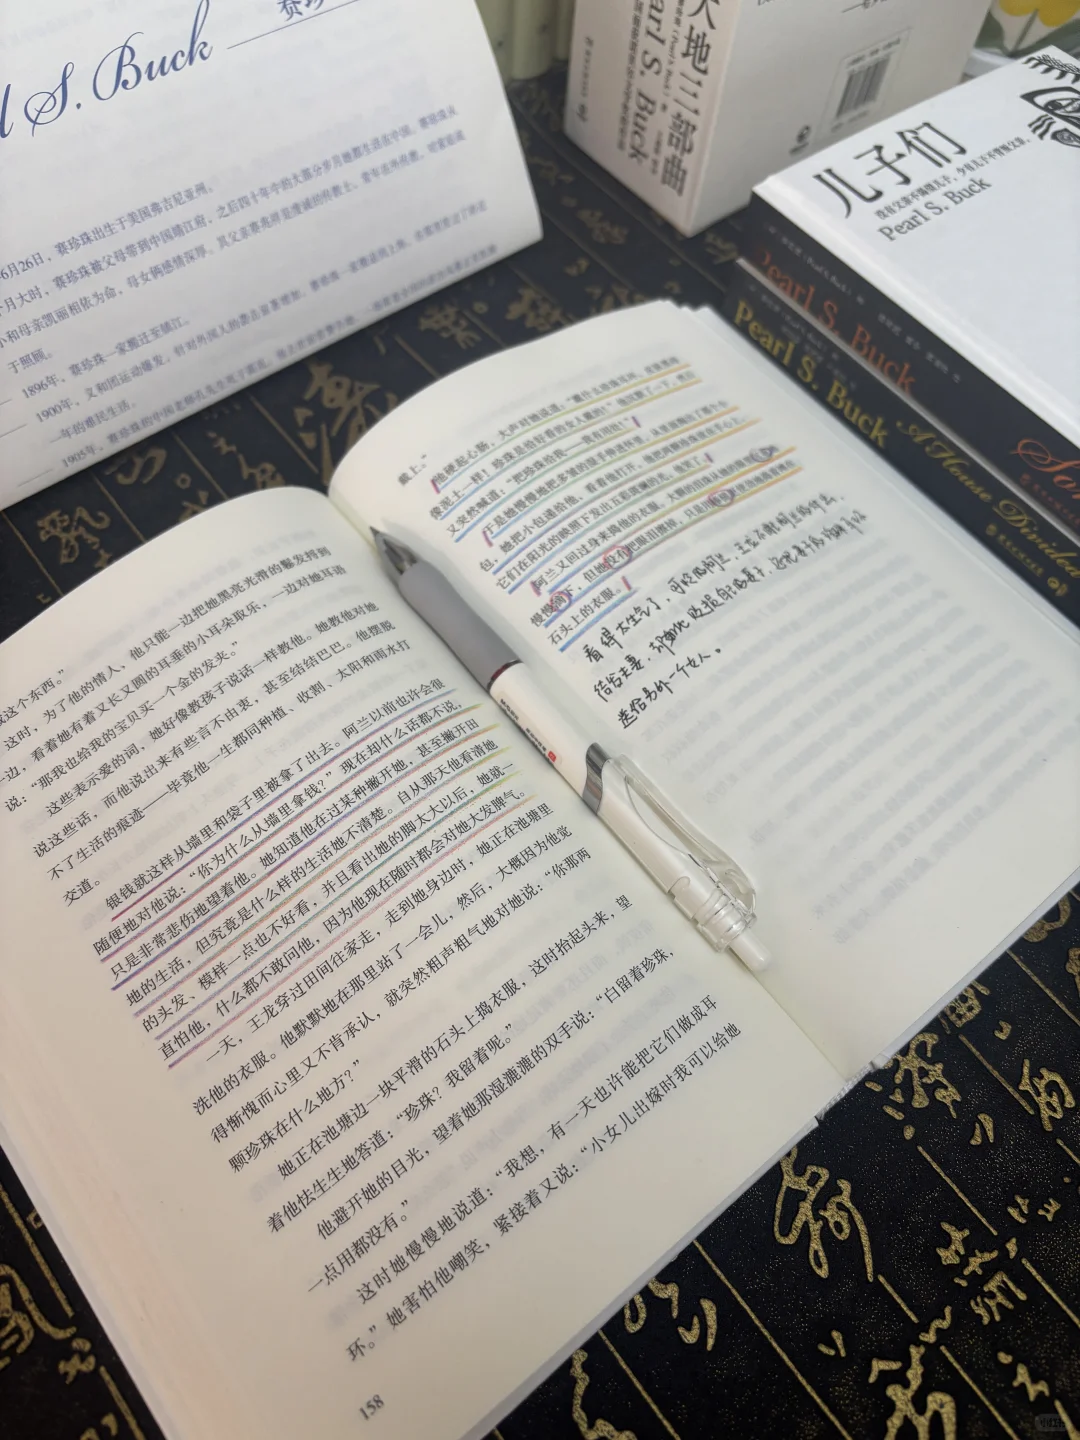 l S. Buck
6月26日，赛珍珠出生于美国弗吉尼亚州。
个月大时，赛珍珠被父母带到中国镇江府，之后四十年中的大部分岁月她都生活在中国。赛珍珠从
小和母亲凯丽相依为命，母女俩感情深厚。其父亲赛兆祥是虔诚的传教士，常年在外传教，对家庭疏
于照顾。
1896年，赛珍珠一家搬迁至镇江。
1900年，义和团运动爆发，针对外国人的袭击显著增加，赛珍珠一家撤退到上海，
一年的难民生活。
1905年，赛珍珠的中国老师孔先生死于霍乱。
大地三部曲
Pearl S. Buck
儿子们
没有父亲不憎恨儿子，少有儿子不背叛父亲。
Pearl S. Buck
Pearl S. Buck
Sons
Pearl S. Buck
A House Divided
成这个东西。”
这时，为了他的情人，他只能一边把她黑亮光滑的鬓发捋到
一边，看着她有着又长又圆的耳垂的小耳朵取乐，一边对她耳语
说：“那我也给我的宝贝买一个金的发夹。”
这些表示爱的词，她好像教孩子说话一样教他。她教他对她
说这些话，而他说出来有些言不由衷，甚至结结巴巴。他摆脱
不了生活的痕迹——毕竟他一生都同种植、收割、太阳和雨水打
交道。
银钱就这样从墙里和袋子里被拿了出去。阿兰以前也许会很
随便地对他说：“你为什么从墙里拿钱？”现在却什么话都不说，
只是非常悲伤地望着他。她知道他在过某种撇开她，甚至撇开田
地的生活，但究竟是什么样的生活她不清楚。自从那天他看清她
的头发、模样一点也不好看，并且看出她的脚太大以后，她就一
直怕他，什么都不敢问他，因为他现在随时都会对她大发脾气。
一天，王龙穿过田间往家走，走到她身边时，她正在池塘里
洗他的衣服。他默默地在那里站了一会儿，然后，大概因为他觉
得惭愧而心里又不肯承认，就突然粗声粗气地对她说：“你那两
颗珍珠在什么地方？”
她正在池塘边一块平滑的石头上捣衣服，这时抬起头来，望
着他怯生生地答道：“珍珠？我留着呢。”
他避开她的目光，望着她那湿漉漉的双手说：“白留着珍珠，
一点用都没有。”
这时她慢慢地说道：“我想，有一天也许能把它们做成耳
环。”她害怕他嘲笑，紧接着又说：“小女儿出嫁时我可以给她
158
戴上。”
他硬起心肠，大声对她说道：
像泥土一样！珍珠是给好看的女人戴的！”他沉默了一下，然后
又突然喊道：“把珍珠给我——我有用处！”
于是她慢慢地把多皱的湿手伸进怀里，从里面掏出了那个小
包。她把小包递给他，看着他打开。他把两颗珍珠放在手心上，
它们在阳光的映照下发出五彩斑斓的光，他笑了。
阿兰又回过身来捣他的衣服。大颗的泪珠从她的眼里
慢慢淌下，但她没有把眼泪擦掉，只是用
石头上的衣服。
看得太生气了，可怜的阿兰，王龙不顾阿兰的
结发夫妻，
送给另外一个女人。